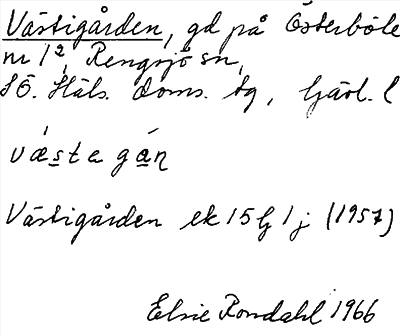 Västigården, gd på Österböle
nr 1², Rengsjö sn,
SÖ. Häls. doms. tg, Gävl. l
vǽste gán
Västigården ek 15 G 1 j (1957)
Elsie Rondahl 1966